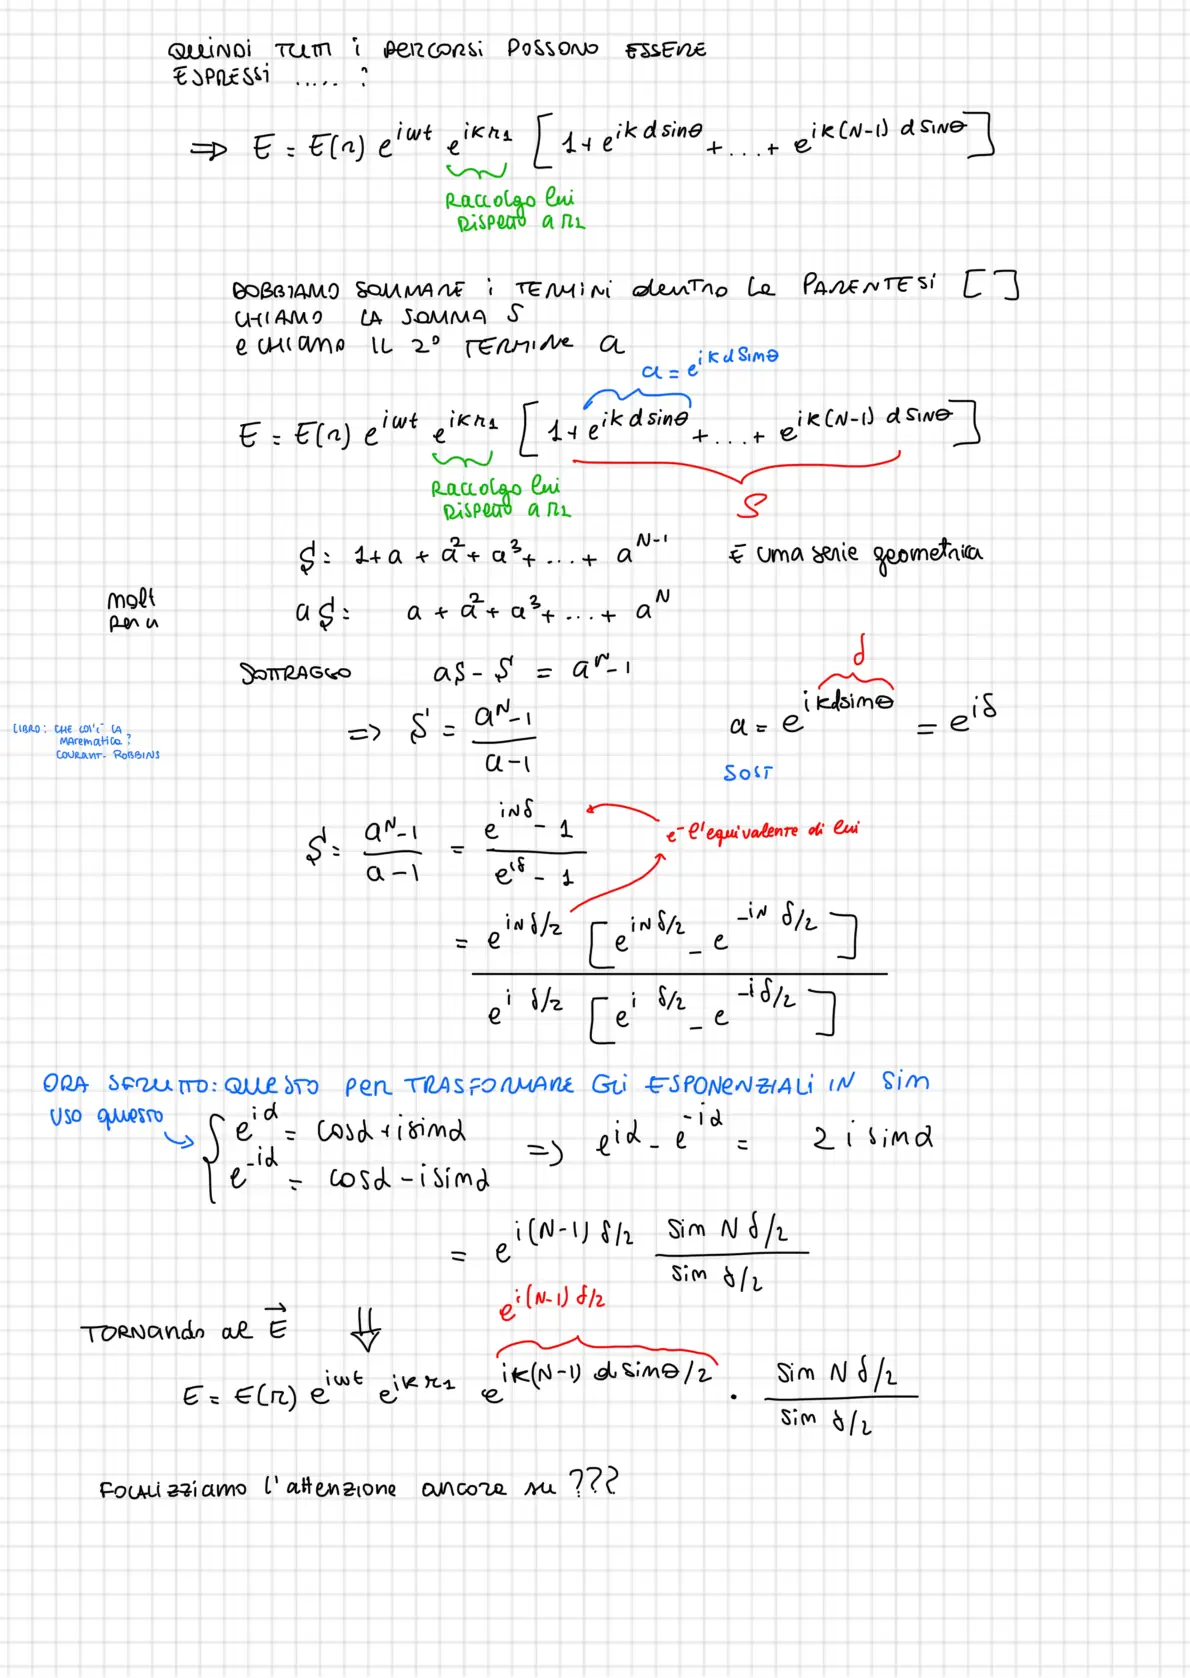 QUINDI TUTTI i PERCORSI POSSONO ESSERE
ESPRESSi ..... ?
⇒ E = E(r) e^{iωt} e^{ikr₁} [ 1 + e^{ik d sinθ} + ... + e^{ik(N-1) d sinθ} ]
Raccolgo lui
Rispetto a r₁
DOBBIAMO SOMMARE i TERMINI dentro le PARENTESi [ ]
CHIAMO LA SOMMA S
e CHIAMO IL 2° TERMINE a
a = e^{ik d sinθ}
E = E(r) e^{iωt} e^{ikr₁} [ 1 + e^{ik d sinθ} + ... + e^{ik(N-1) d sinθ} ]
Raccolgo lui
Rispetto a r₁
S
S = 1 + a + a² + a³ + ... + a^{N-1} È una serie geometrica
molt
per a
aS = a + a² + a³ + ... + a^N
SOTTRAGGO aS - S = a^N - 1
δ
LIBRO: CHE COS'È LA
MATEMATICA?
COURANT- ROBBINS
=> S = \frac{a^N - 1}{a - 1} a = e^{i kd sinθ} = e^{iδ}
SOST
S = \frac{a^N - 1}{a - 1} = \frac{e^{iNδ} - 1}{e^{iδ} - 1} e' l'equivalente di lui
= \frac{e^{iNδ/2} [ e^{iNδ/2} - e^{-iNδ/2} ]}{e^{iδ/2} [ e^{iδ/2} - e^{-iδ/2} ]}
ORA SFRUTTO: QUESTO PER TRASFORMARE Gli ESPONENZIALI IN sin
USO questo
{ e^{iα} = cosα + i sinα => e^{iα} - e^{-iα} = 2 i sinα
e^{-iα} = cosα - i sinα
= e^{i(N-1) δ/2} \frac{sin N δ/2}{sin δ/2}
e^{i(N-1) δ/2}
TORNando al \vec{E} ⇓
E = E(r) e^{iωt} e^{ikr₁} e^{ik(N-1) d sinθ/2} · \frac{sin N δ/2}{sin δ/2}
FOCALIZZIAMO l'attenzione ancora su ???